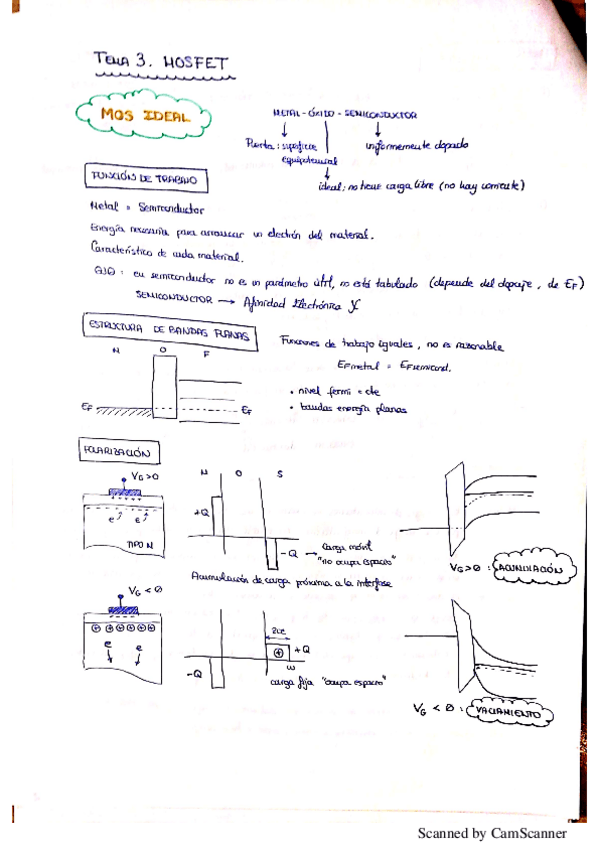 TEMA 3. MOSFET
MOS IDEAL
METAL - ÓXIDO - SEMICONDUCTOR
Puerta: superficie equipotencial
uniformemente dopado
ideal; no tiene carga libre (no hay corriente)
FUNCIÓN DE TRABAJO
Metal = Semiconductor
Energía necesaria para arrancar un electrón del material.
Característico de cada material.
OJO: en semiconductor no es un parámetro útil, no está tabulado (depende del dopaje, de EF)
SEMICONDUCTOR → Afinidad Electrónica χ
ESTRUCTURA DE BANDAS PLANAS
Funciones de trabajo iguales, no es razonable
EFmetal = EFsemicond.
M O
• nivel fermi = cte
• bandas energía planas
EF EF
POLARIZACIÓN
VG>0
M O S
+Q
e⁻ e⁻
TIPO N
-Q → carga móvil
"no ocupa espacio"
VG>0: ACUMULACIÓN
Acumulación de carga próxima a la interfase
VG < 0
+ + + + + +
e e
+ +Q
-Q
w
carga fija "ocupa espacio"
VG < 0: VACIAMIENTO
Scanned by CamScanner